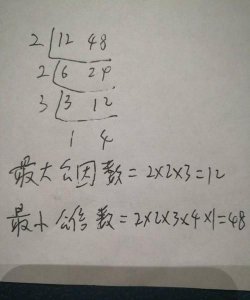 2 12 48
2 6 24
3 3 12
1 4
最大公因数=2×2×3=12
最小公倍数=2×2×3×4×1=48